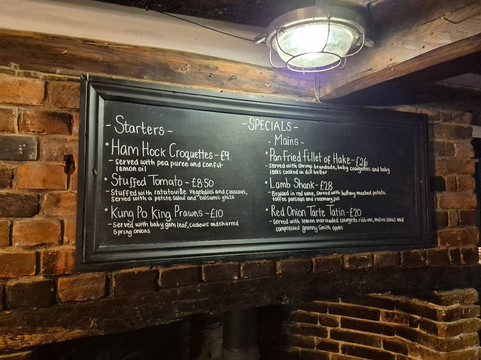 SPECIALS-
- Starters -
• Ham Hock Croquettes - £9
- served with pea puree and confit
lemon oil
• Stuffed Tomato - £8.50
- Stuffed with ratatouille vegetables and couscous,
served with a petite salad and balsamic glaze
• Kung Po King Prawns - £10
- Served with baby gem leaf, cashews and charred
spring onions
- Mains -
• Pan Fried Fillet of Hake - £26
- served with shrimp brandade, baby courgettes and baby
leeks cooked in dill butter
• Lamb Shank - £28
- Braised in red wine, served with buttery mashed potato,
and rosemary jus
• Red Onion Tarte Tatin - £20
- served with lemon marinaded courgette ribbons, salad and
compressed granny Smith apples